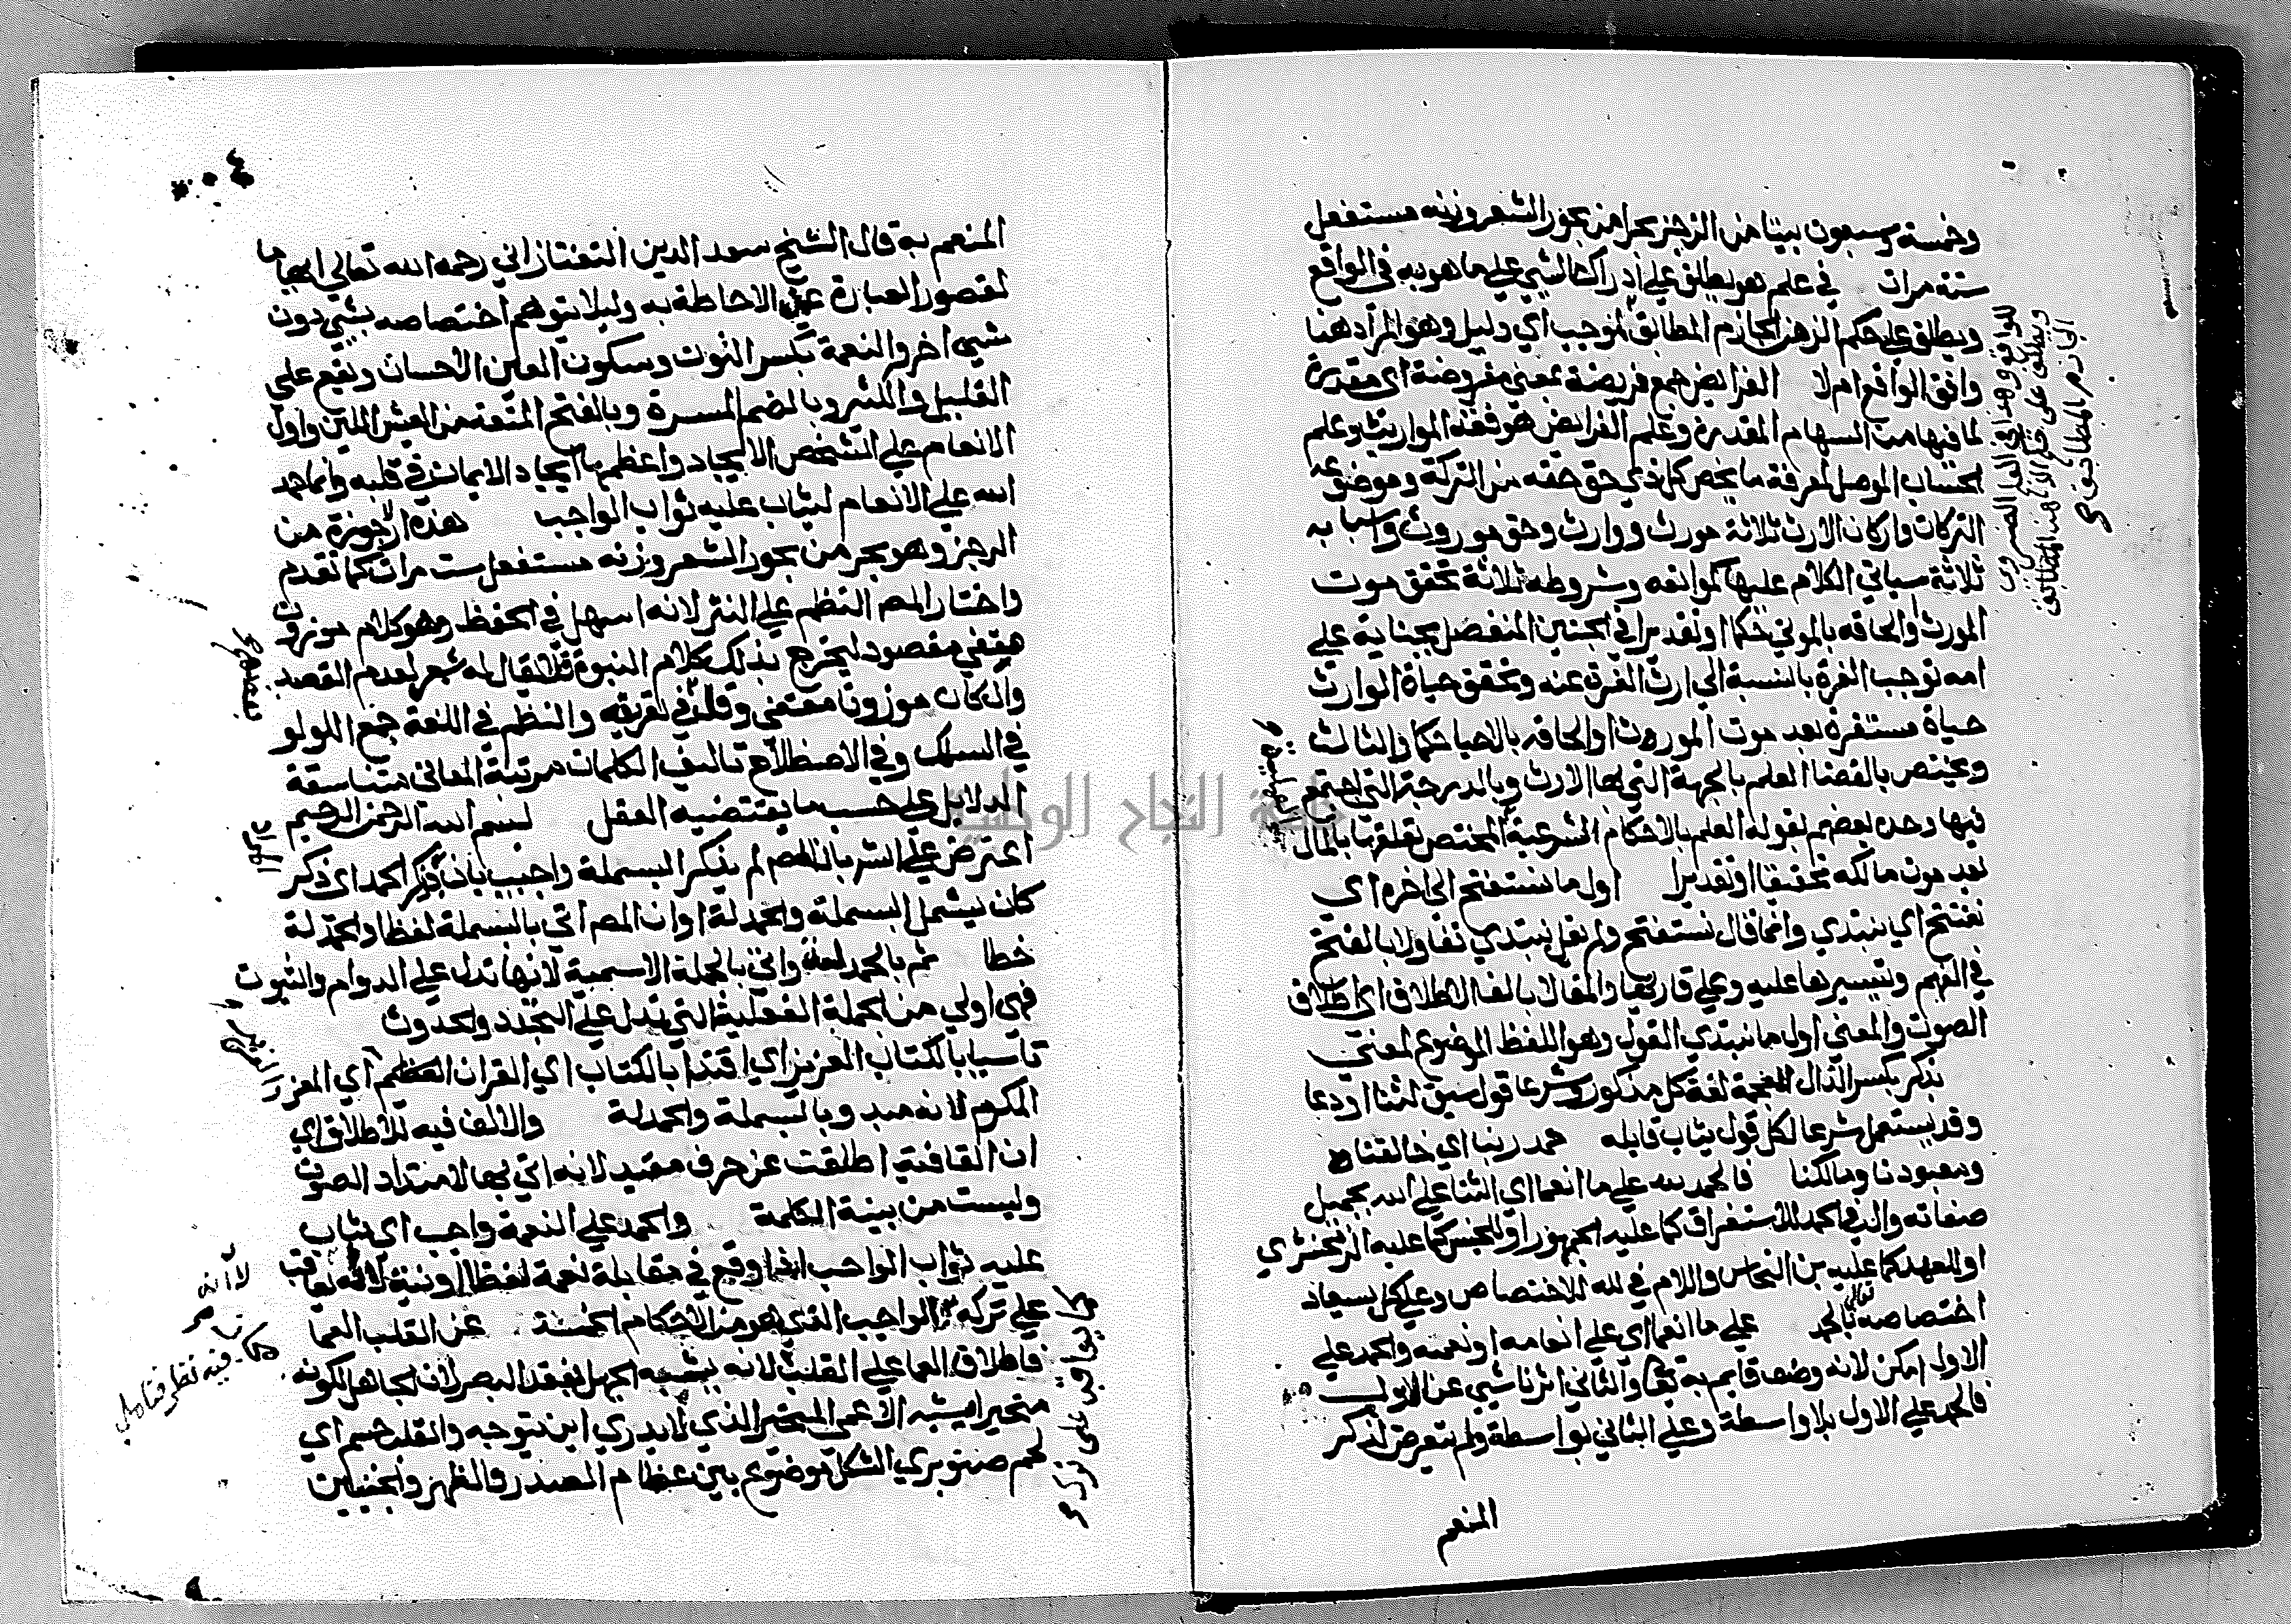 وخمسة وسبعون بيتا من الرجز بحر من بحور الشعر وزنه مستفعل
ستة مرات في علم هو يطلق على ادراك الشيي على ما هو به في الواقع
ويطلق على حكم الذهن الجازم المطابق لموجب اي دليل وهو المراد هنا
وافق الواقع ام لا الفرايض جمع فريضة بمعني مفروضة اي مقدرة
لما فيها من السهام المقدرة وعلم الفرايض هو فقه المواريث وعلم
الحساب الموصل لمعرفة ما يخص كل ذي حق حقه من التركة وموضوعه
التركات واركان الارث ثلاثة مورث ووارث وحق موروث واسبابه
ثلاثة سياتي الكلام عليها كموانعه وشروطه ثلاثة تحقق موت
المورث والحاقه بالموتي حكما او تقديرا في الجنين المنفصل بجناية علي
امه توجب الغرة بالنسبة الي ارث الغرة عنه وتحقق حياة الوارث
حياة مستقرة بعد موت المورث او الحاقه بالاحيا حكما والثالث
ويختص بالقضا العلم بالجهة التي لها الارث وبالدرجة التي اجتمع
فيها وحده بعضهم بقوله العلم بالاحكام الشرعية المختص تعلقها بالمال
بعد موت مالكه تحقيقا او تقديرا اول ما نستفتح الي اخره اي
نفتتح اي نبتدي وانما قال نستفتح ولم يقل نبتدي تفاولا بالفتح
في الفهم وتيسيرها عليه وعلي قاريها والمقالا بالف الاطلاق اي اطلاق
الصوت والمعني اول ما نبتدي القول وهو اللفظ الموضوع لمعني
بذكر بكسر الذال المعجمة لغة كل مذكور وشرعا قول سيق لثنا او دعا
وقد يستعمل شرعا لكل قول يثاب قايله حمد ربنا اي خالقنا
ومعبودنا ومالكنا فالحمد لله علي ما انعما اي الثنا علي الله بجميل
صفاته وال في الحمد للاستغراق كما عليه الجمهور او للجنس كما عليه الزمخشري
او للعهد كما عليه بن النحاس واللام في لله للاختصاص وعلي كل يستفاد
اختصاصه تعالي بالحمد علي ما انعما اي علي انعامه او نعمته والحمد علي
الاول امكن لانه وصف قايم به تعا والثاني اثر ناشي عن الاول
فالحمد علي الاول بلا واسطة وعلي الثاني بواسطة ولم يتعرض لذكر
المنعم
للواقع وهذا هو
ويطلق على حكم
الجازم المطابق
المنعم به قال الشيخ سعد الدين التفتازاني رحمه الله تعالي ايهاما
لقصور العبارة عن الاحاطة به وليلا يتوهم اختصاصه بشيي دون
شيي اخر والنعمة بكسر النون وسكون العين الاحسان وتقع علي
القليل والكثير وبالضم المسرة وبالفتح المتعة من العيش اللين واول
الانعام علي الشخص الايجاد واعظمها ايجاد الايمان في قلبه وانما حمد
الله علي الانعام ليثاب عليه ثواب الواجب هذه ارجوزة من
الرجز وهو بحر من بحور الشعر وزنه مستفعل ست مرات كما تقدم
واختار المص النظم علي النثر لانه اسهل في الحفظ وهو كلام موزون
مقفي مقصود ليخرج بذلك كلام النبوة فلا يقال له شعر لعدم القصد
وان كان موزونا مقتفي وقال في تعريفه والنظم في اللغة جمع اللولو
في السلك وفي الاصطلاح تاليف الكلمات مرتبة المعاني متناسقة
الدلايل علي حسب ما يقتضيه العقل بسم الله الرحمن الرحيم
اعترض علي الشر بان المص لم يذكر البسملة واجيب بان ذكر الحمد اي ذكر
كان يشمل البسملة والحمدلة او ان المص اتي بالبسملة لفظا والحمدلة
خطا ثم بالحمدلة واتي بالجملة الاسمية لانها تدل علي الدوام والثبوت
فهي اولي من الجملة الفعلية التي تدل علي التجدد والحدوث
تاسيا بالكتاب العزيز اي اقتدا بالكتاب اي القران العظيم اي المعز
المكرم لانه مبدو بالبسملة والحمدلة والالف فيه للاطلاق اي
ان القافية اطلقت عن حرف مقيد لانه اتي بها لامتداد الصوت
وليست من بنية الكلمة والحمد علي النعمة واجب اي يثاب
عليه ثواب الواجب اذا وقع في مقابلة نعمة لفظا او نية لانه يعاقب
علي تركه الواجب الذي هو من الاحكام الخمسة عن القلب العما
فاطلاق العما علي القلب لانه يشبه الجهل بفقد البصر لان الجاهل لكونه
متحيرا يشبه الاعمي المتحير الذي لا يدري اين يتوجه والقلب جسم اي
لحم صنوبري الشكل موضوع بين عظام الصدر والظهر والجنبين
بعضهم
لا انه
فيه نظر فتامل
يعاقب على تركه